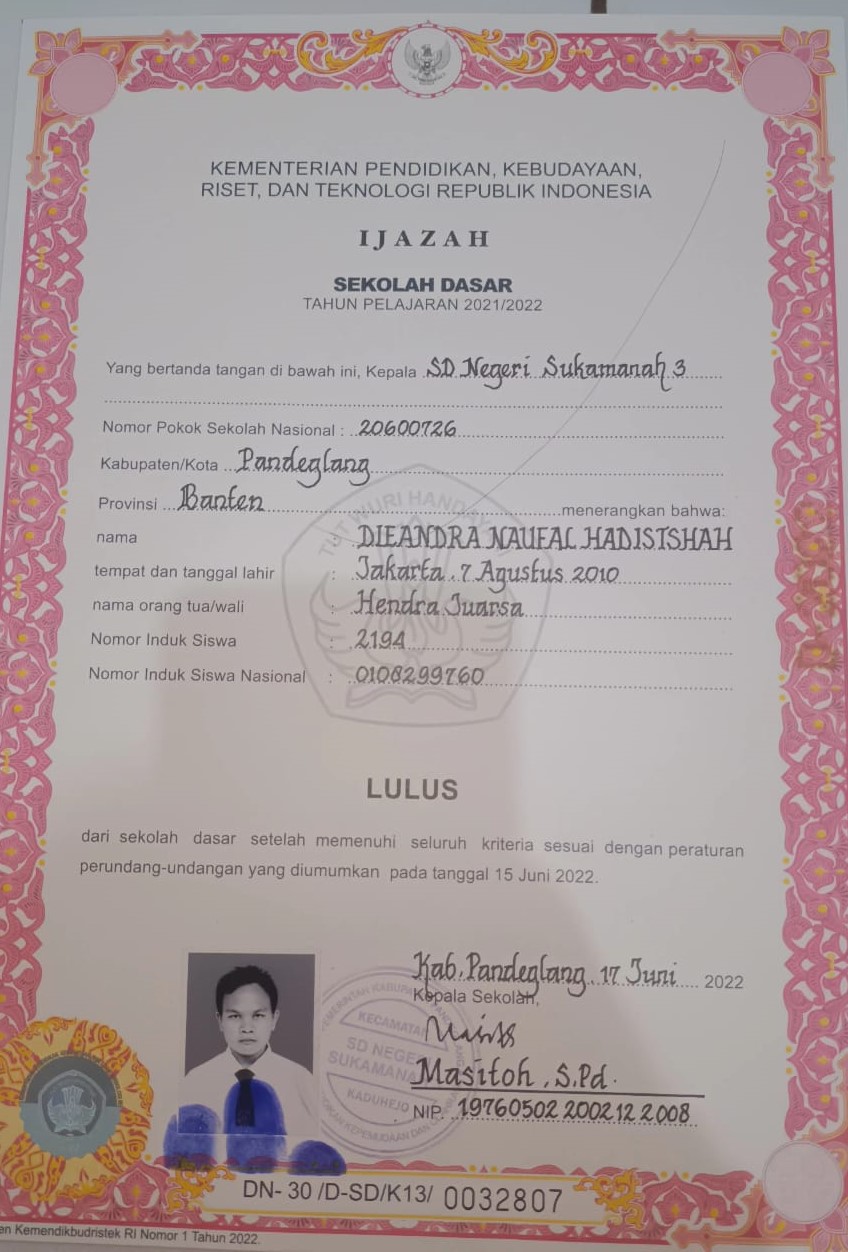 KEMENTERIAN PENDIDIKAN, KEBUDAYAAN,
RISET, DAN TEKNOLOGI REPUBLIK INDONESIA
IJAZAH
SEKOLAH DASAR
TAHUN PELAJARAN 2021/2022
Yang bertanda tangan di bawah ini, Kepala SD Negeri Sukamanah 3
Nomor Pokok Sekolah Nasional : 20600726
Kabupaten/Kota Pandeglang
Provinsi Banten menerangkan bahwa:
nama : DIEANDRA NAUFAL HADISTSHAH
tempat dan tanggal lahir : Jakarta, 7 Agustus 2010
nama orang tua/wali : Hendra Juarsa
Nomor Induk Siswa : 2194
Nomor Induk Siswa Nasional : 0108299760
TUT WURI HANDAYANI
LULUS
dari sekolah dasar setelah memenuhi seluruh kriteria sesuai dengan peraturan
perundang-undangan yang diumumkan pada tanggal 15 Juni 2022.
Kab. Pandeglang 17 Juni 2022
Kepala Sekolah,
SD NEGERI
SUKAMANA
KADUHEJO
Masitoh, S.Pd.
NIP. 19760502 200212 2008
DN- 30 /D-SD/K13/ 0032807
en Kemendikbudristek RI Nomor 1 Tahun 2022.